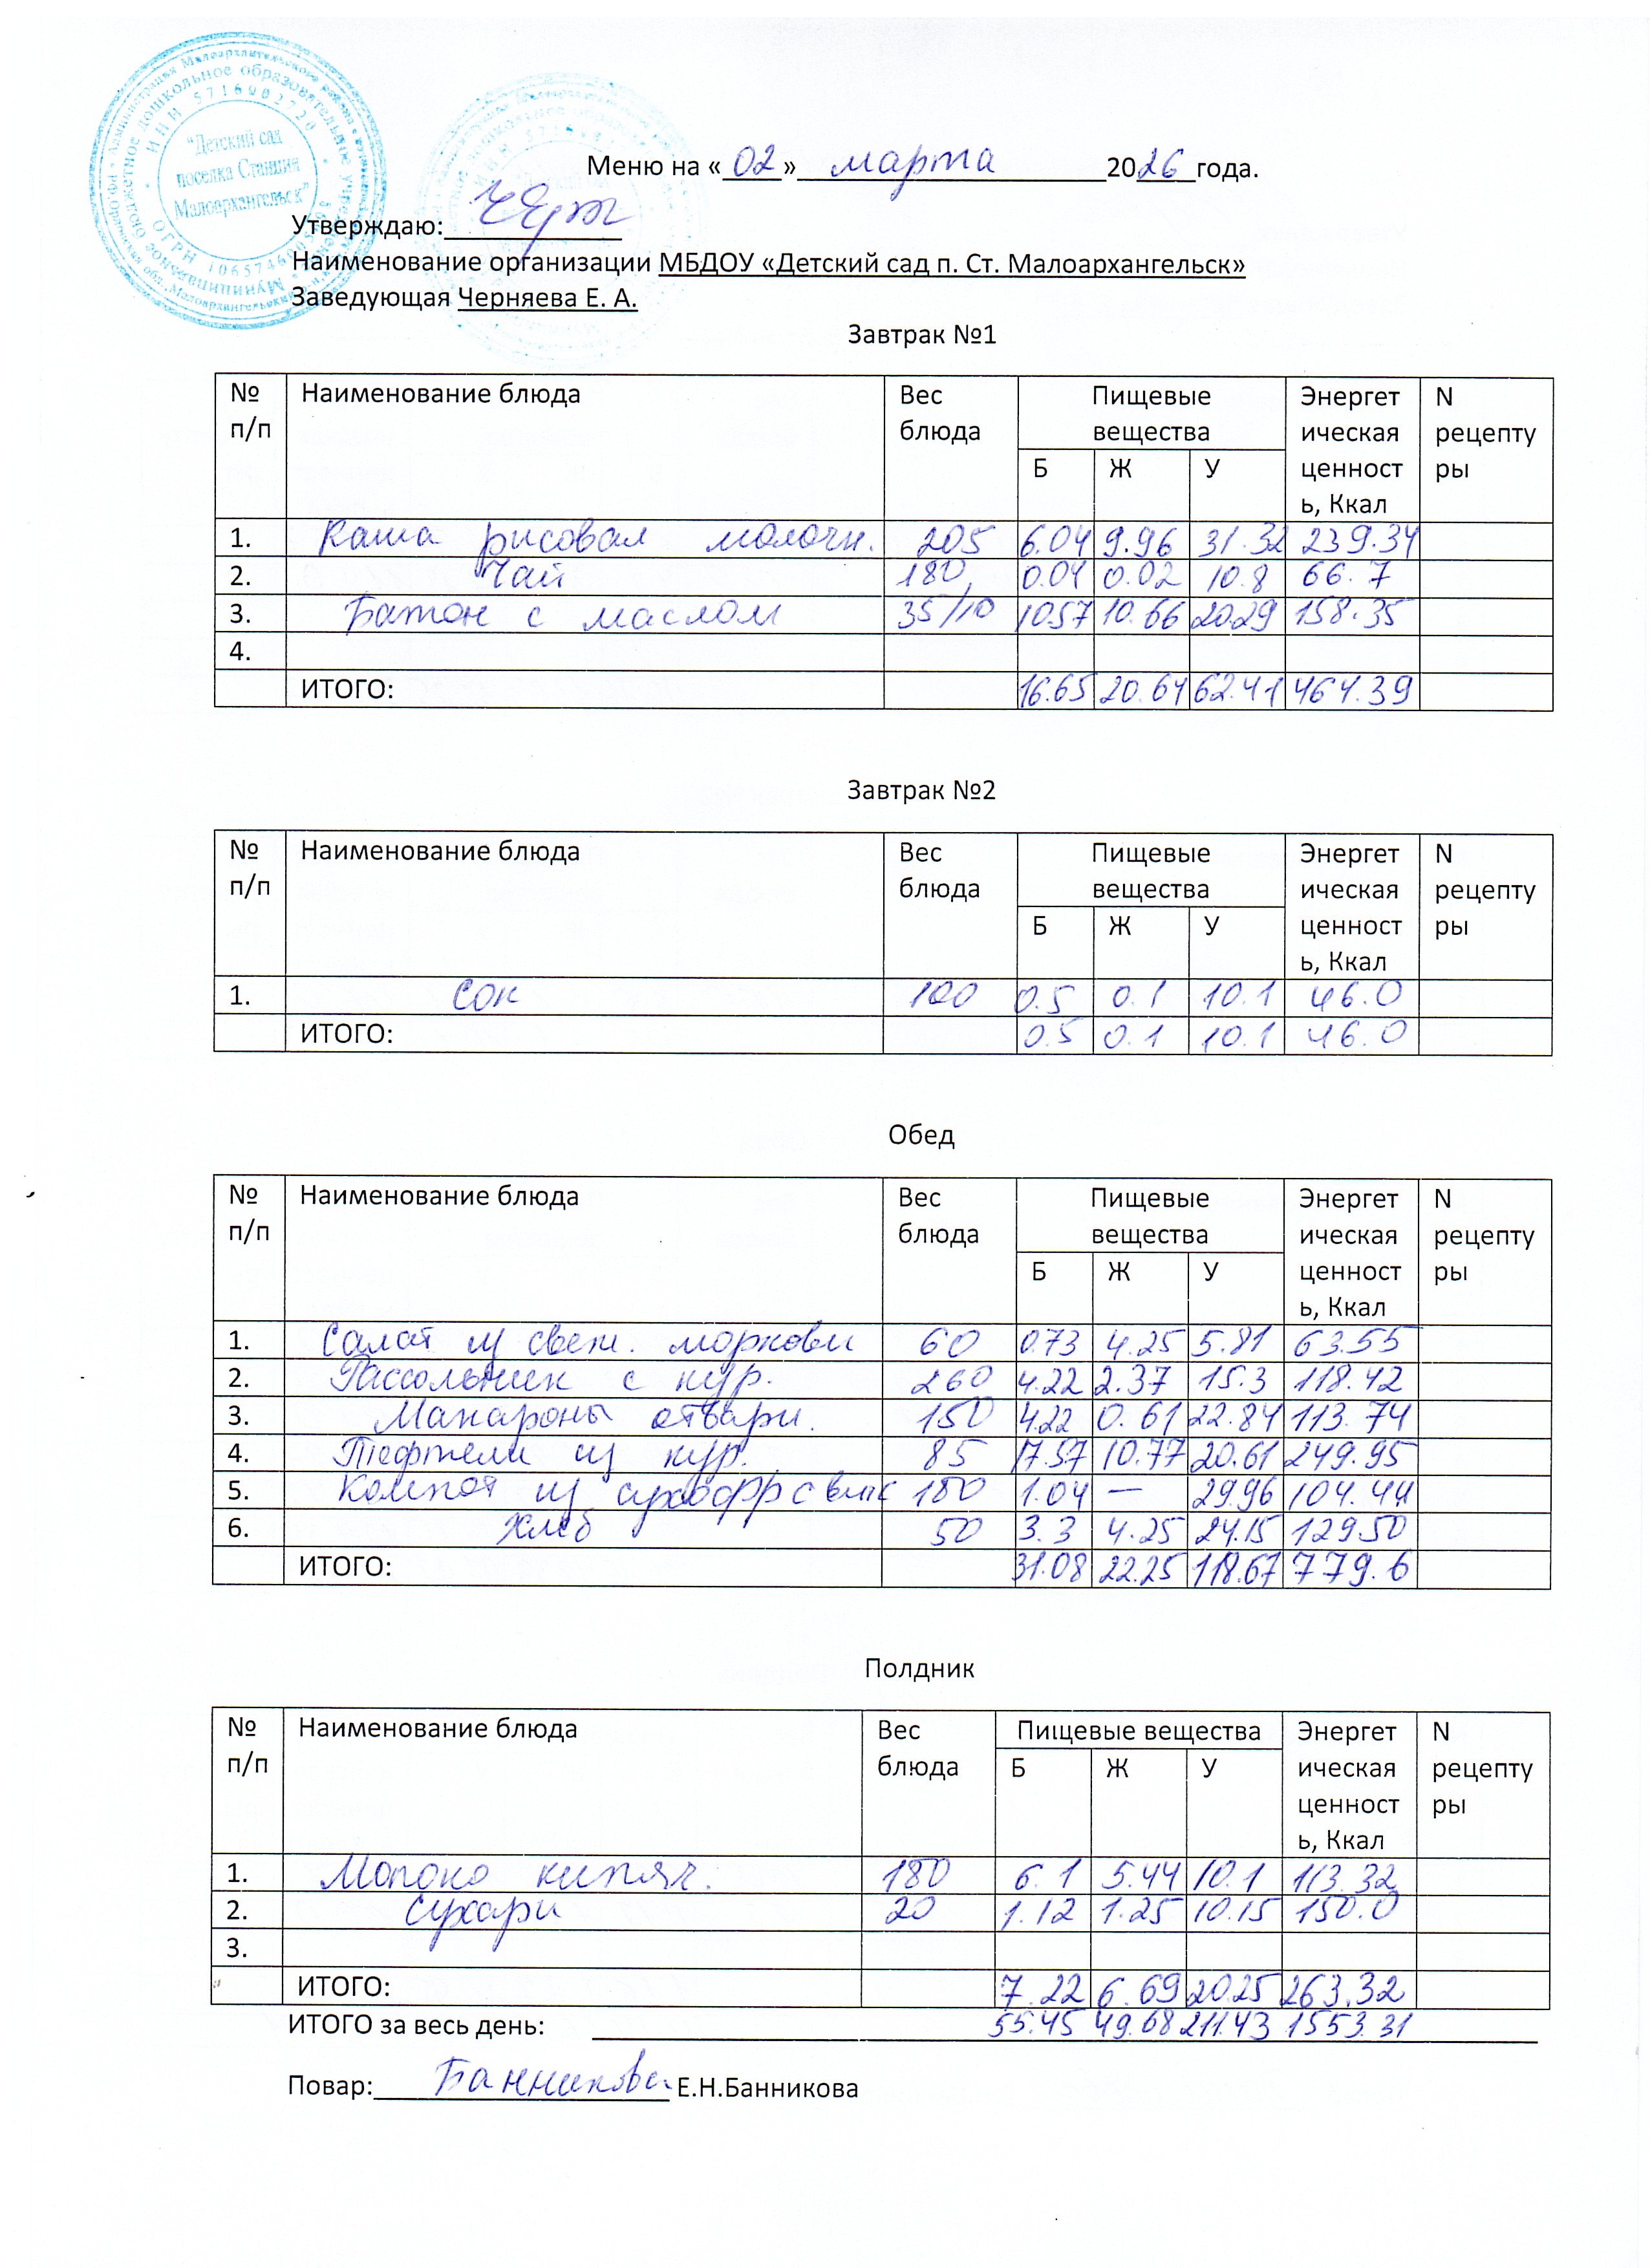 "Детский сад
поселка Станция
Малоархангельск"
ИНН 5716002720
Меню на «02» марта 2026 года.
Утверждаю:
Наименование организации МБДОУ «Детский сад п. Ст. Малоархангельск»
Заведующая Черняева Е. А.
Завтрак №1
№ п/п Наименование блюда Вес блюда Пищевые вещества Энергетическая ценность, Ккал N рецептуры
Б Ж У
1. Каша рисовая молочн. 205 6.04 9.96 31.32 239.34
2. Чай 180 0.04 0.02 10.8 66.7
3. Батон с маслом 35/10 10.57 10.66 20.29 158.35
4.
ИТОГО: 16.65 20.64 62.41 464.39
Завтрак №2
№ п/п Наименование блюда Вес блюда Пищевые вещества Энергетическая ценность, Ккал N рецептуры
Б Ж У
1. Сок 100 0.5 0.1 10.1 46.0
ИТОГО: 0.5 0.1 10.1 46.0
Обед
№ п/п Наименование блюда Вес блюда Пищевые вещества Энергетическая ценность, Ккал N рецептуры
Б Ж У
1. Салат из свеж. моркови 60 0.73 4.25 5.81 63.55
2. Рассольник с кур. 260 4.22 2.37 15.3 118.42
3. Макароны отварн. 150 4.22 0.61 22.84 113.74
4. Тефтели из кур. 85 17.57 10.77 20.61 249.95
5. Компот из сухофр с вит С 180 1.04 — 29.96 104.44
6. Хлеб 50 3.3 4.25 24.15 129.50
ИТОГО: 31.08 22.25 118.67 779.6
Полдник
№ п/п Наименование блюда Вес блюда Пищевые вещества Энергетическая ценность, Ккал N рецептуры
Б Ж У
1. Молоко кипяч. 180 6.1 5.44 10.1 113.32
2. Сухари 20 1.12 1.25 10.15 150.0
3.
ИТОГО: 7.22 6.69 20.25 263.32
ИТОГО за весь день: 55.45 49.68 211.43 1553.31
Повар: Банникова Е.Н.Банникова